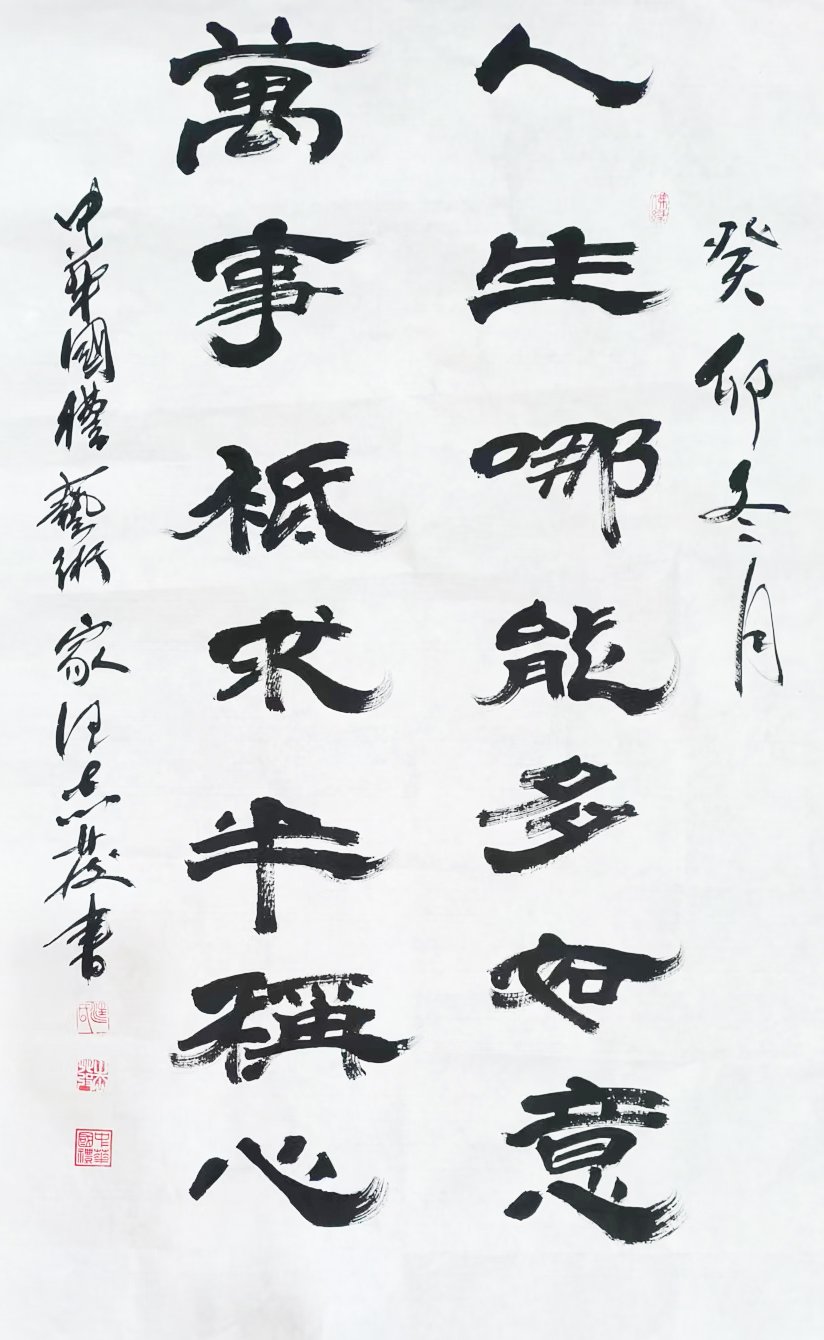 癸卯冬月
人生哪能多如意
萬事祗求半稱心
中華國禮藝術家汪志書
中華國禮